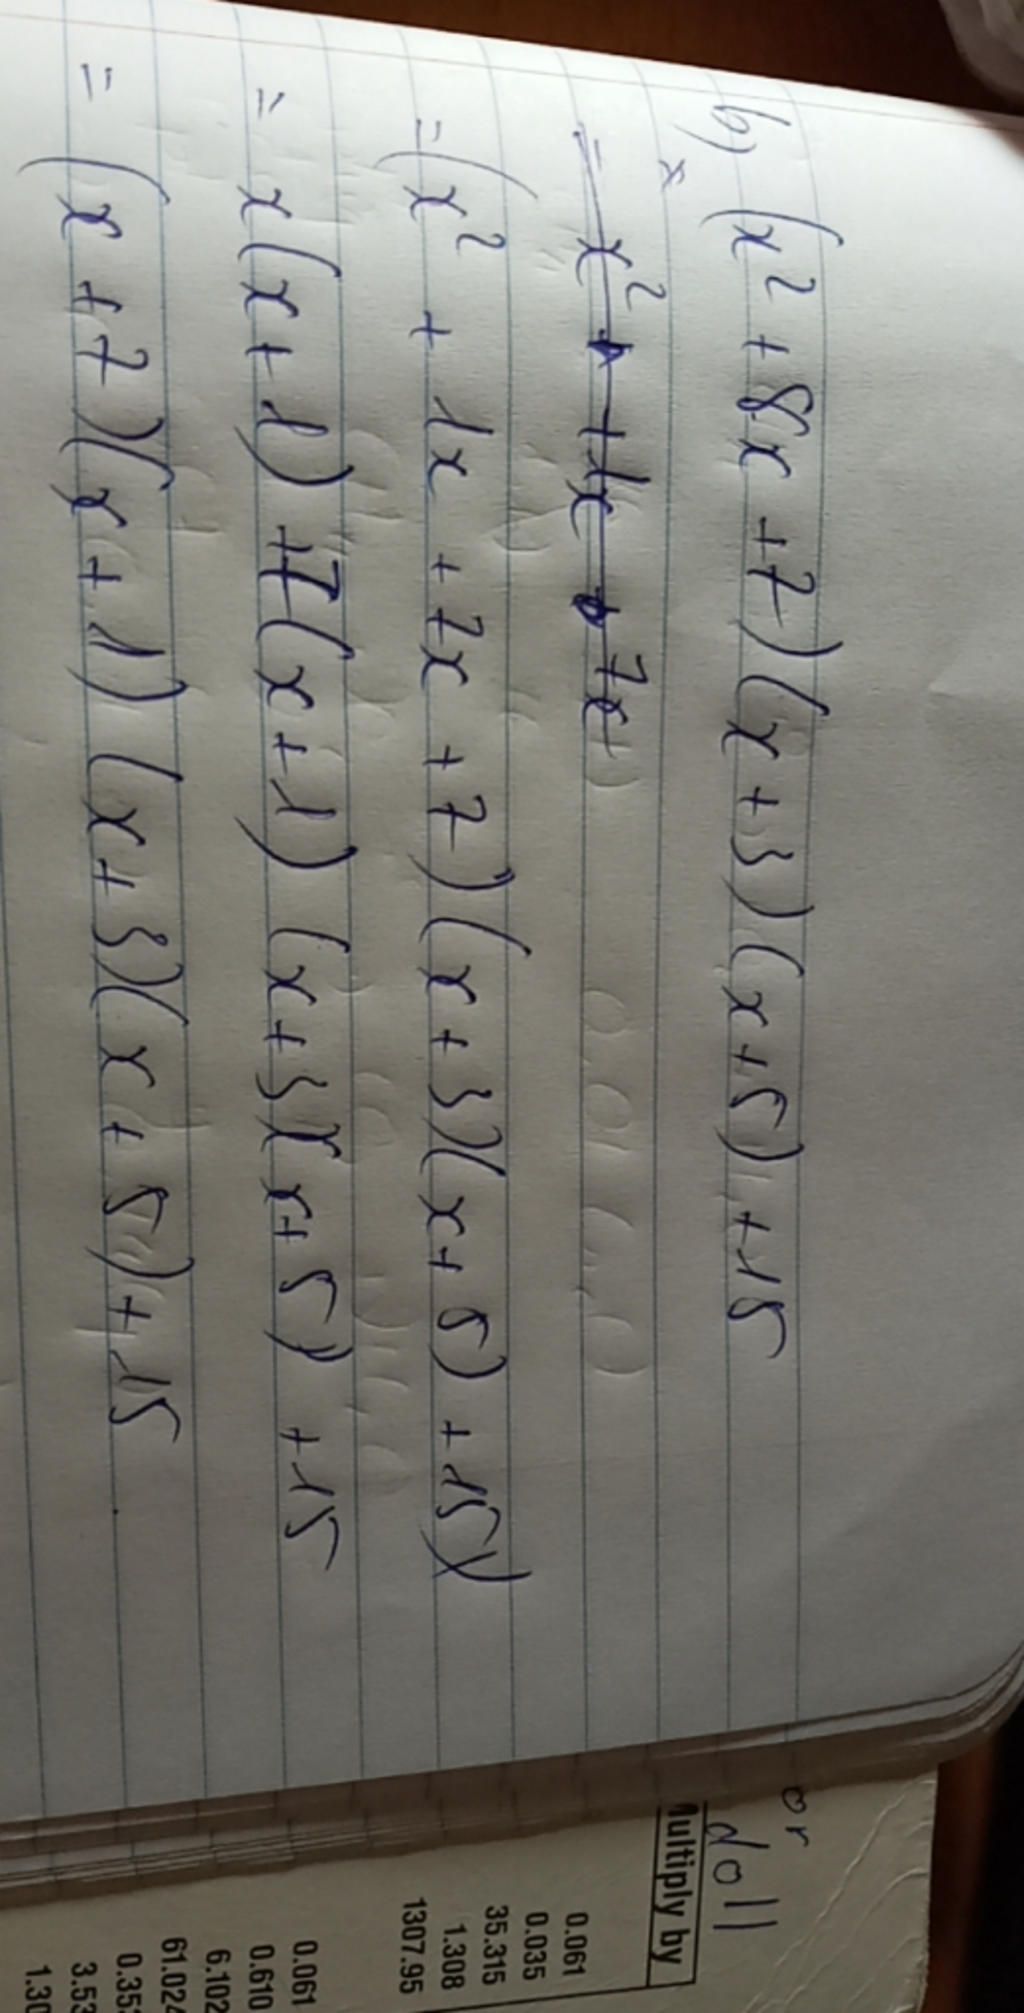 b) (x² + 8x + 7)(x + 3)(x + 5) + 15
= x² + 1x + 7x
= (x² + 1x + 7x + 7)(x + 3)(x + 5) + 15)
= x(x + 1) + 7(x + 1) (x + 3)(x + 5) + 15
= (x + 7)(x + 1) (x + 3)(x + 5) + 15
or
doll
Multiply by
0.061
0.035
35.315
1.308
1307.95
0.061
0.610
6.102
61.024
3.53
1.30